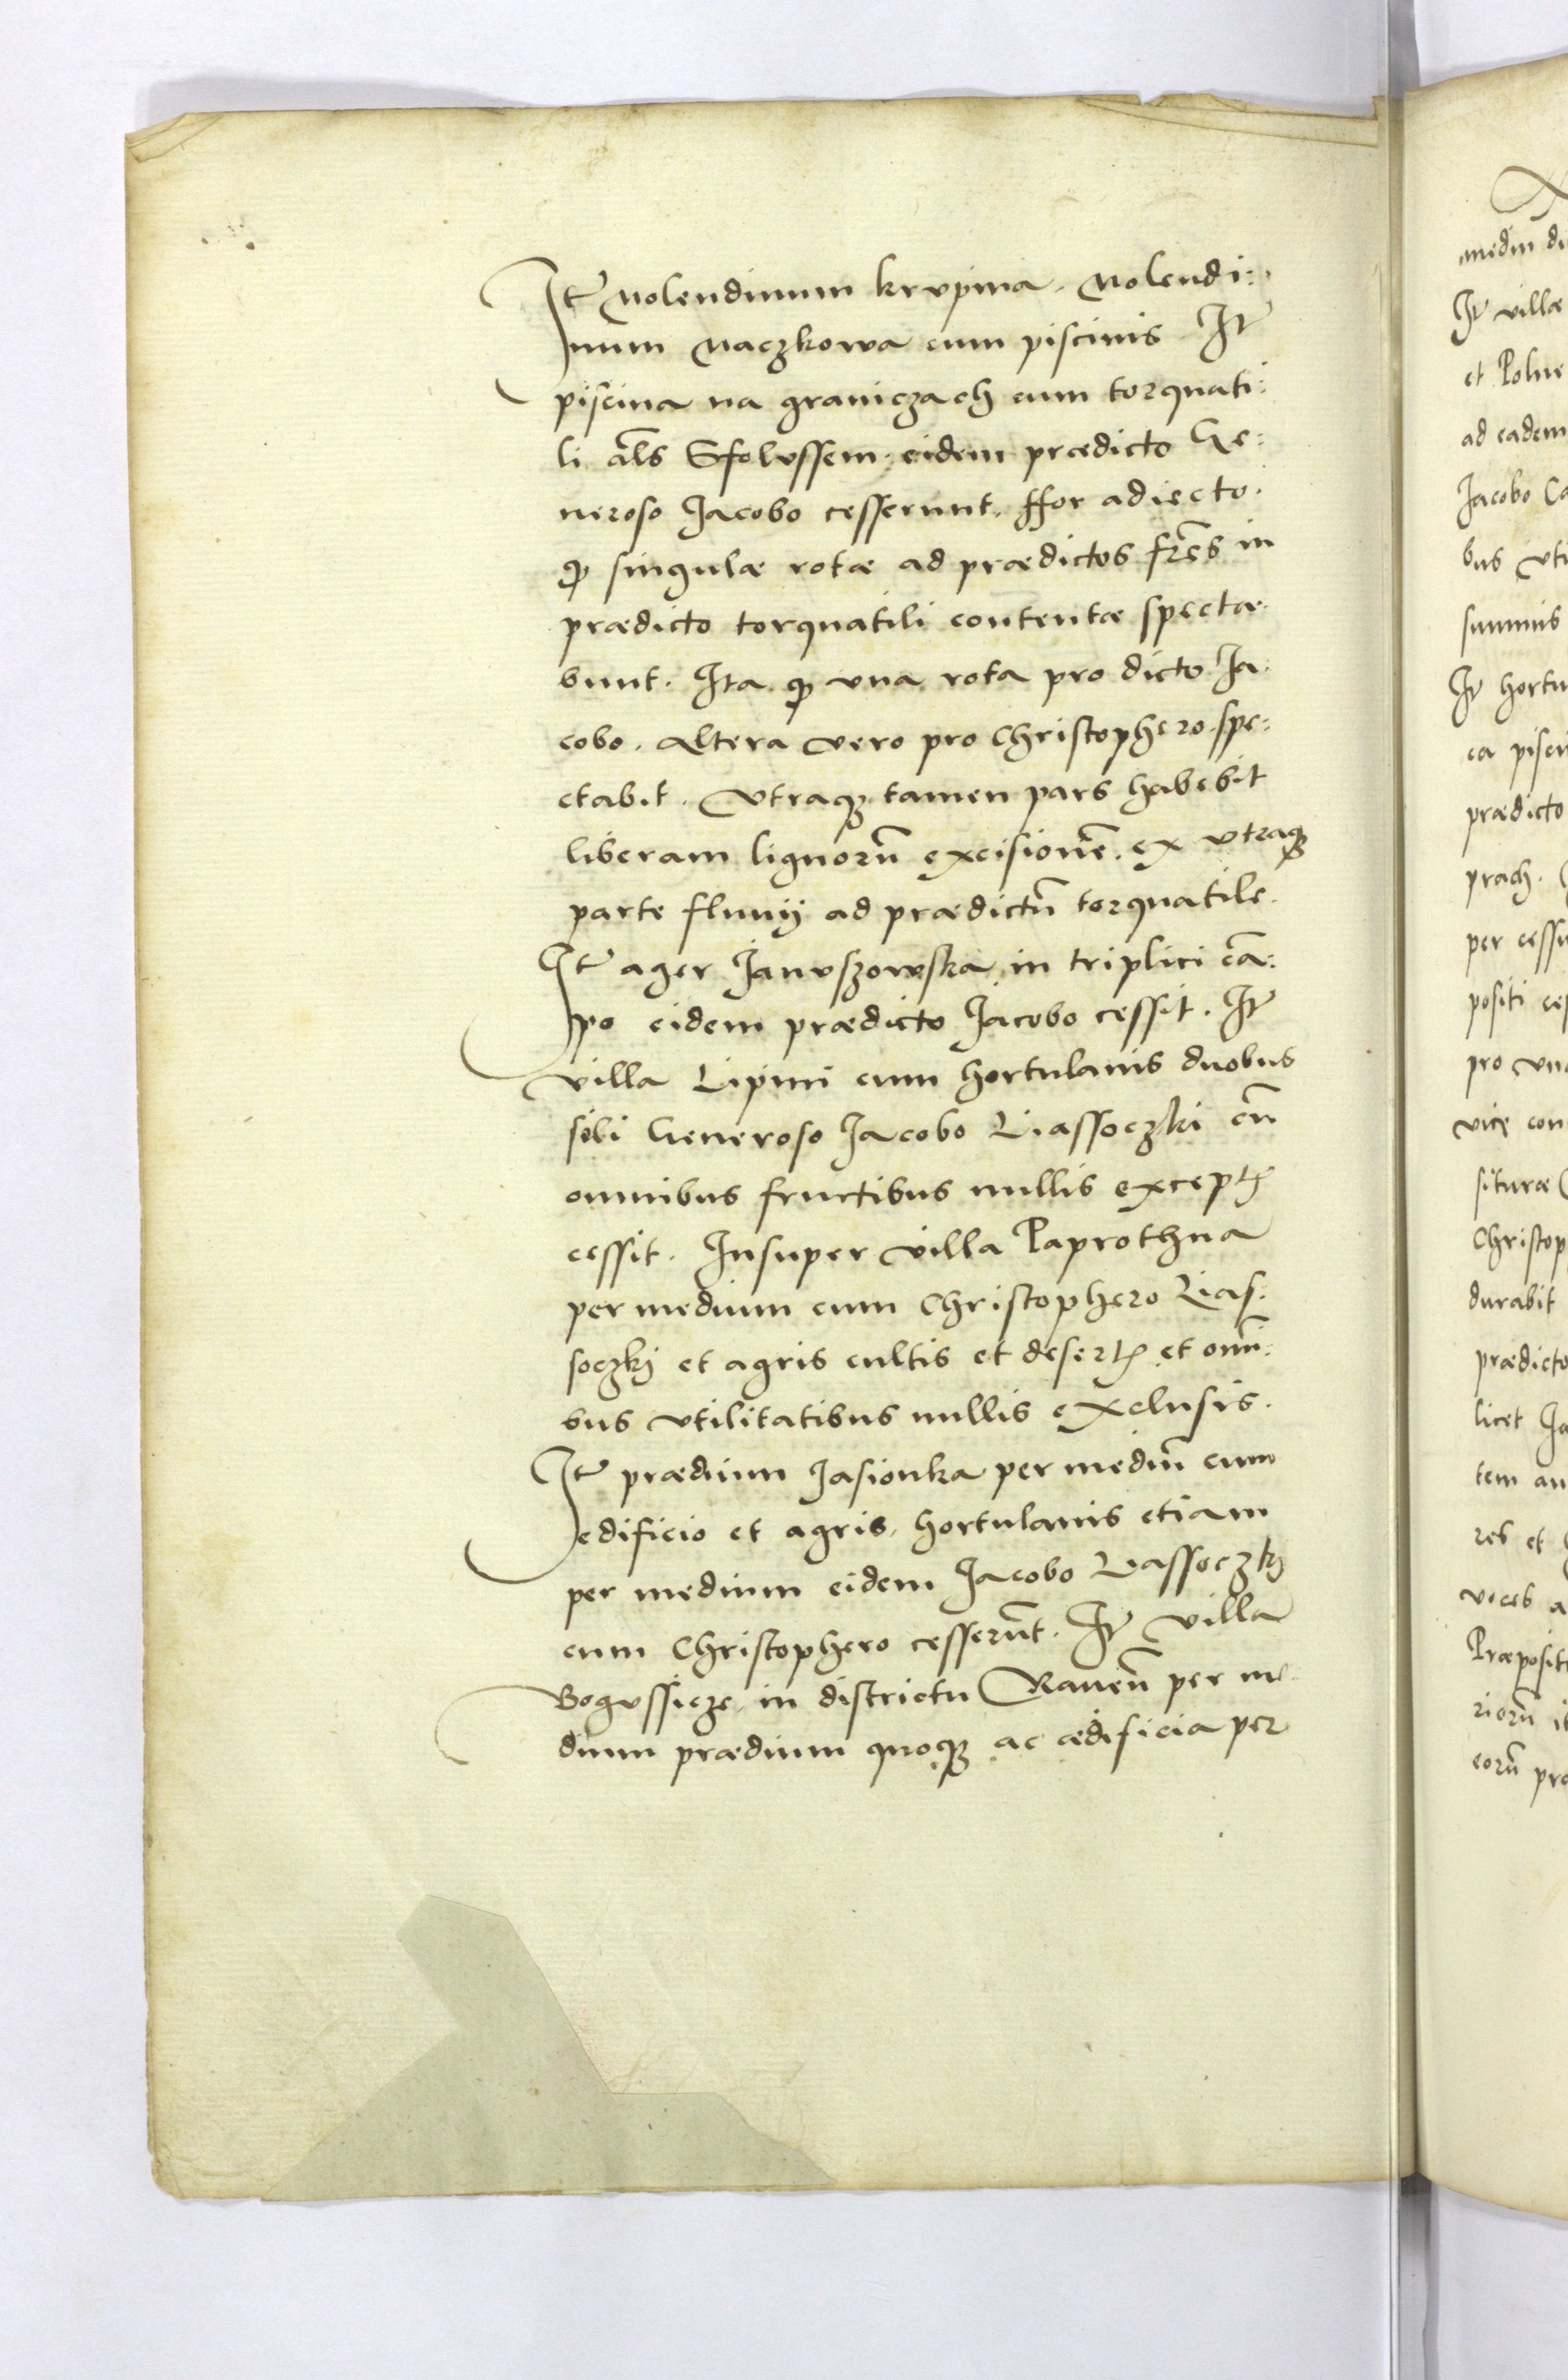 Itē Molendinum krvpina. Molendi:
num Maczkowa cum piscinis Itē
piscina na graniczach cum torquati:
li als̄ Sfolvssem eidem prædicto Ge:
neroso Jacobo cesserunt. Hoc adiecto.
qꝫ singulæ rotæ ad prædictos fr̄es in
prædicto torquatili contentæ spectæ
bunt. Ita qꝫ vna rota pro dicto Ja
cobo. Altera vero pro Christophero spe:
ctabit. Vtraqꝫ tamen pars habebit
liberam lignorū excisionē. ex vtraqꝫ
parte fluuij ad prædictū torquatile.
Itē ager Janvszowska in triplici cā:
po eidem prædicto Jacobo cessit. Itē
villa Lipini cum hortulanis duobus
sibi Generoso Jacobo Liassoczki cū
omnibus fructibus nullis exceptꝭ
cessit. Insuper villa Paprothna
per medium cum Christophero Lias:
soczkj et agris cultis et desertꝭ et omī:
bus vtilitatibus nullis exclusis.
Itē prædium Jasionka per mediū cum
edificio et agris, hortulanis etiam
per medium eidem Jacobo Lassoczkj
cum Christophero cesserūt. Itē villa
Bogvssicze in districtu Rauen̄ per me
dium prædium quoqꝫ ac ædificia per
medm di
Itē villæ
et Polne
ad eadem
Jacobo
bus vti
summis
Itē hortu
ca pisci
prædicto
prach.
per cessi
positi
pro vna
vice con
situræ
Christop
durabit
prædicto
licet Ja
tem au
res et
voces a
Præposit
riorū
eorū pro